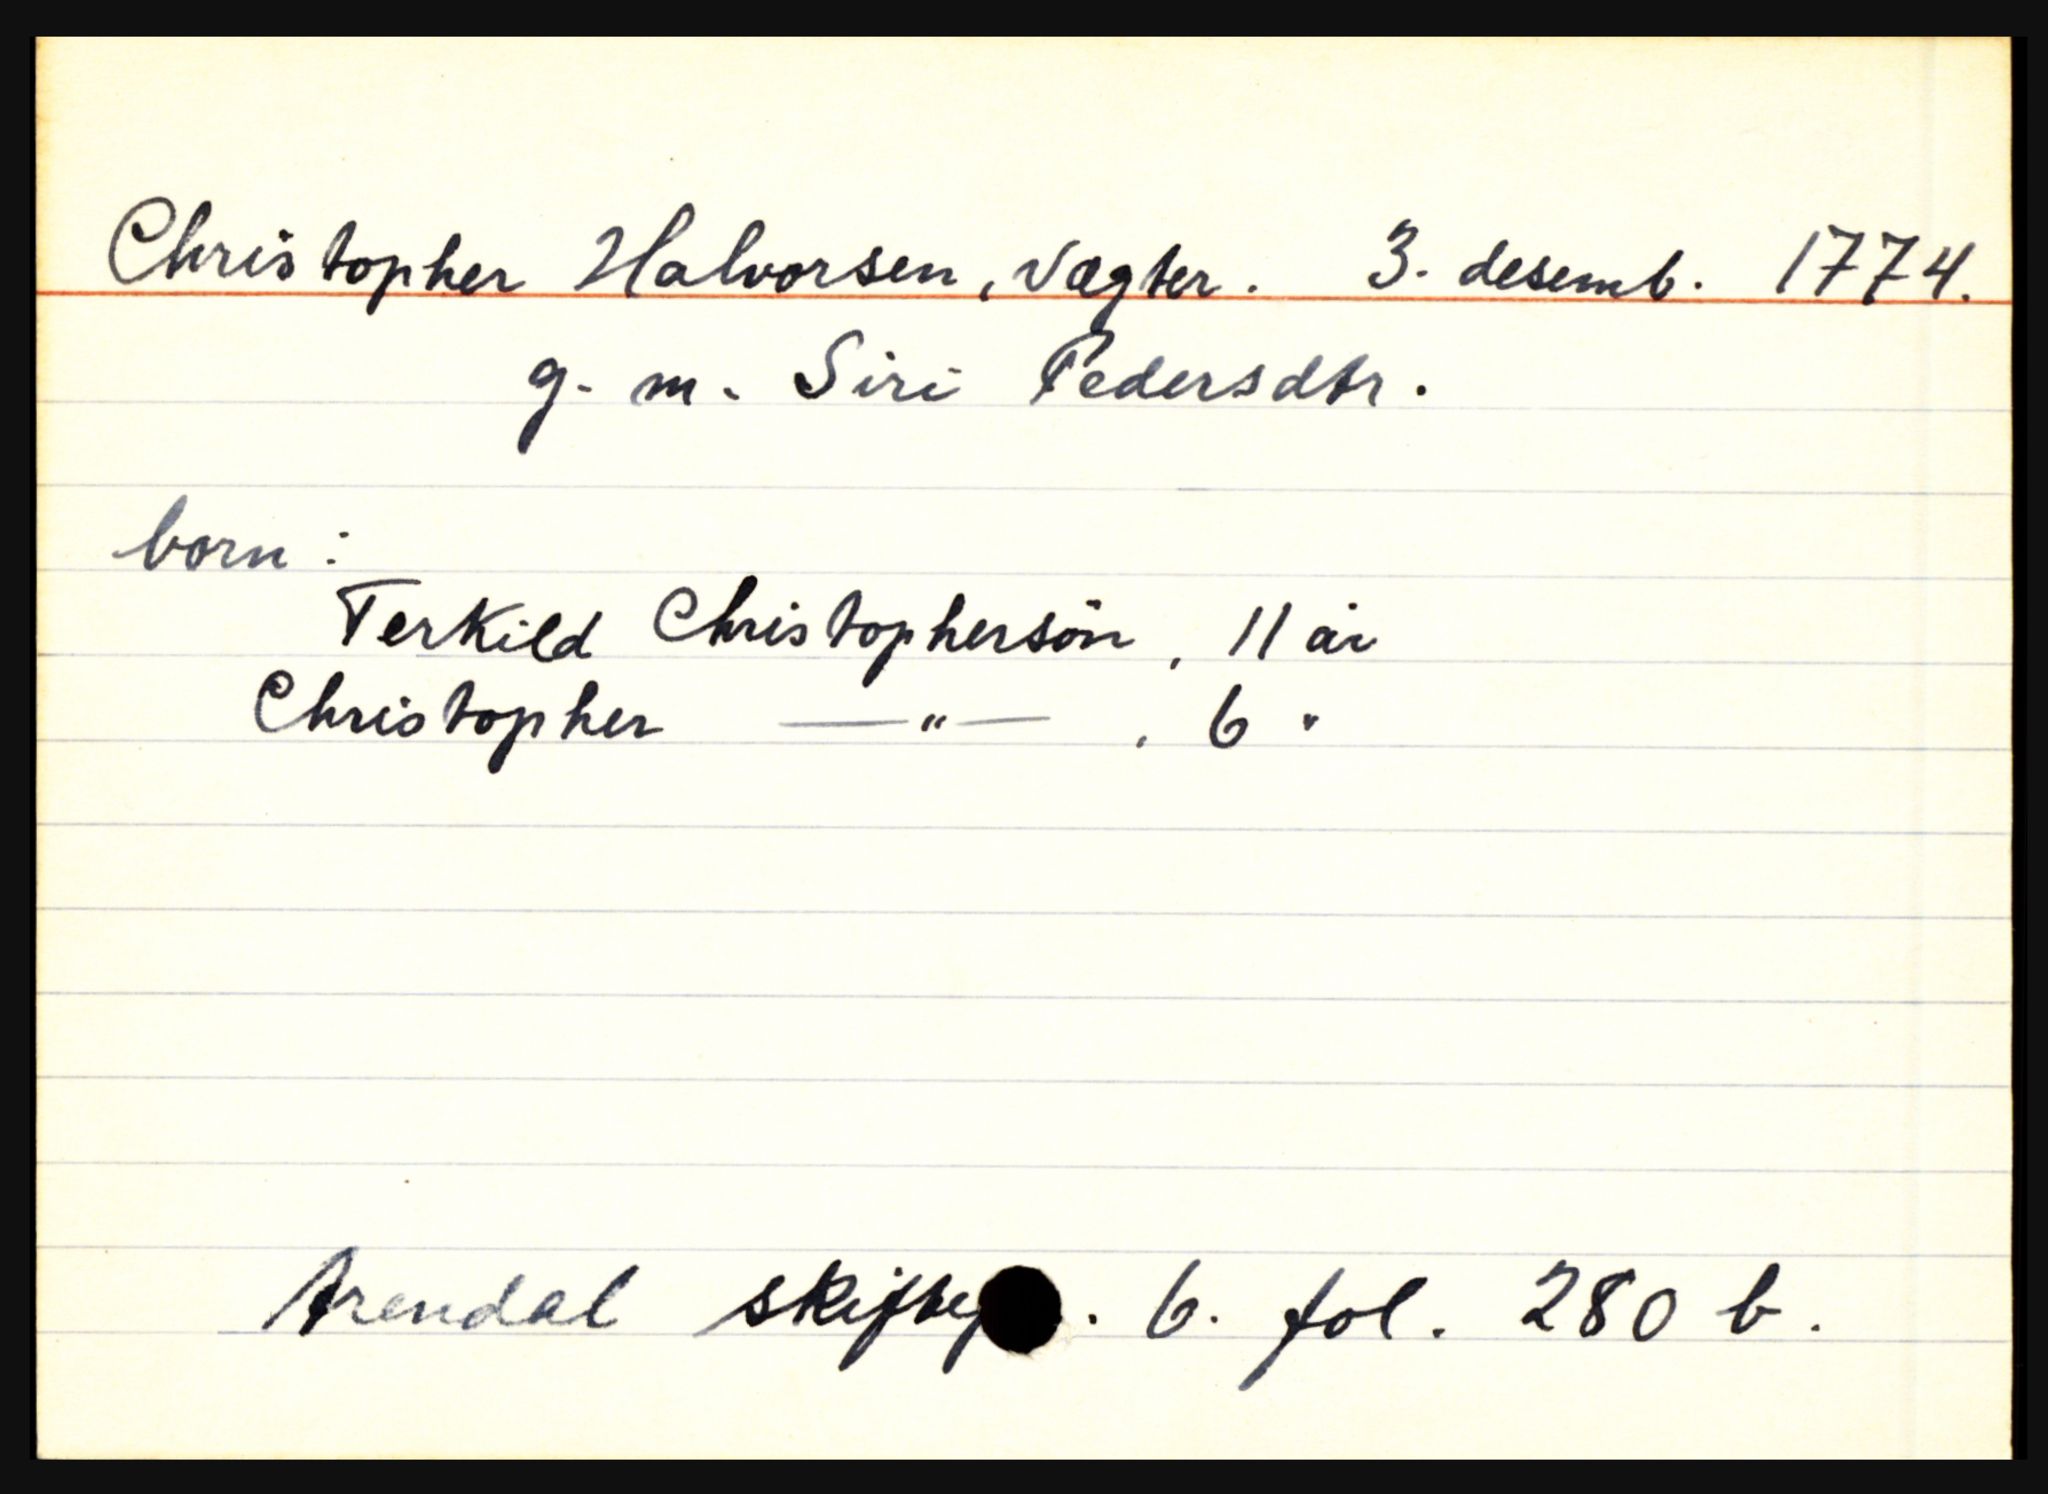 Christopher Halvorsen, vægter. 3. desemb. 1774.
g. m. Siri Pedersdtr.
born:
Terkild Christophersön, 11 år
Christopher —"— , 6 "
Arendal . 6. fol. 280 b.